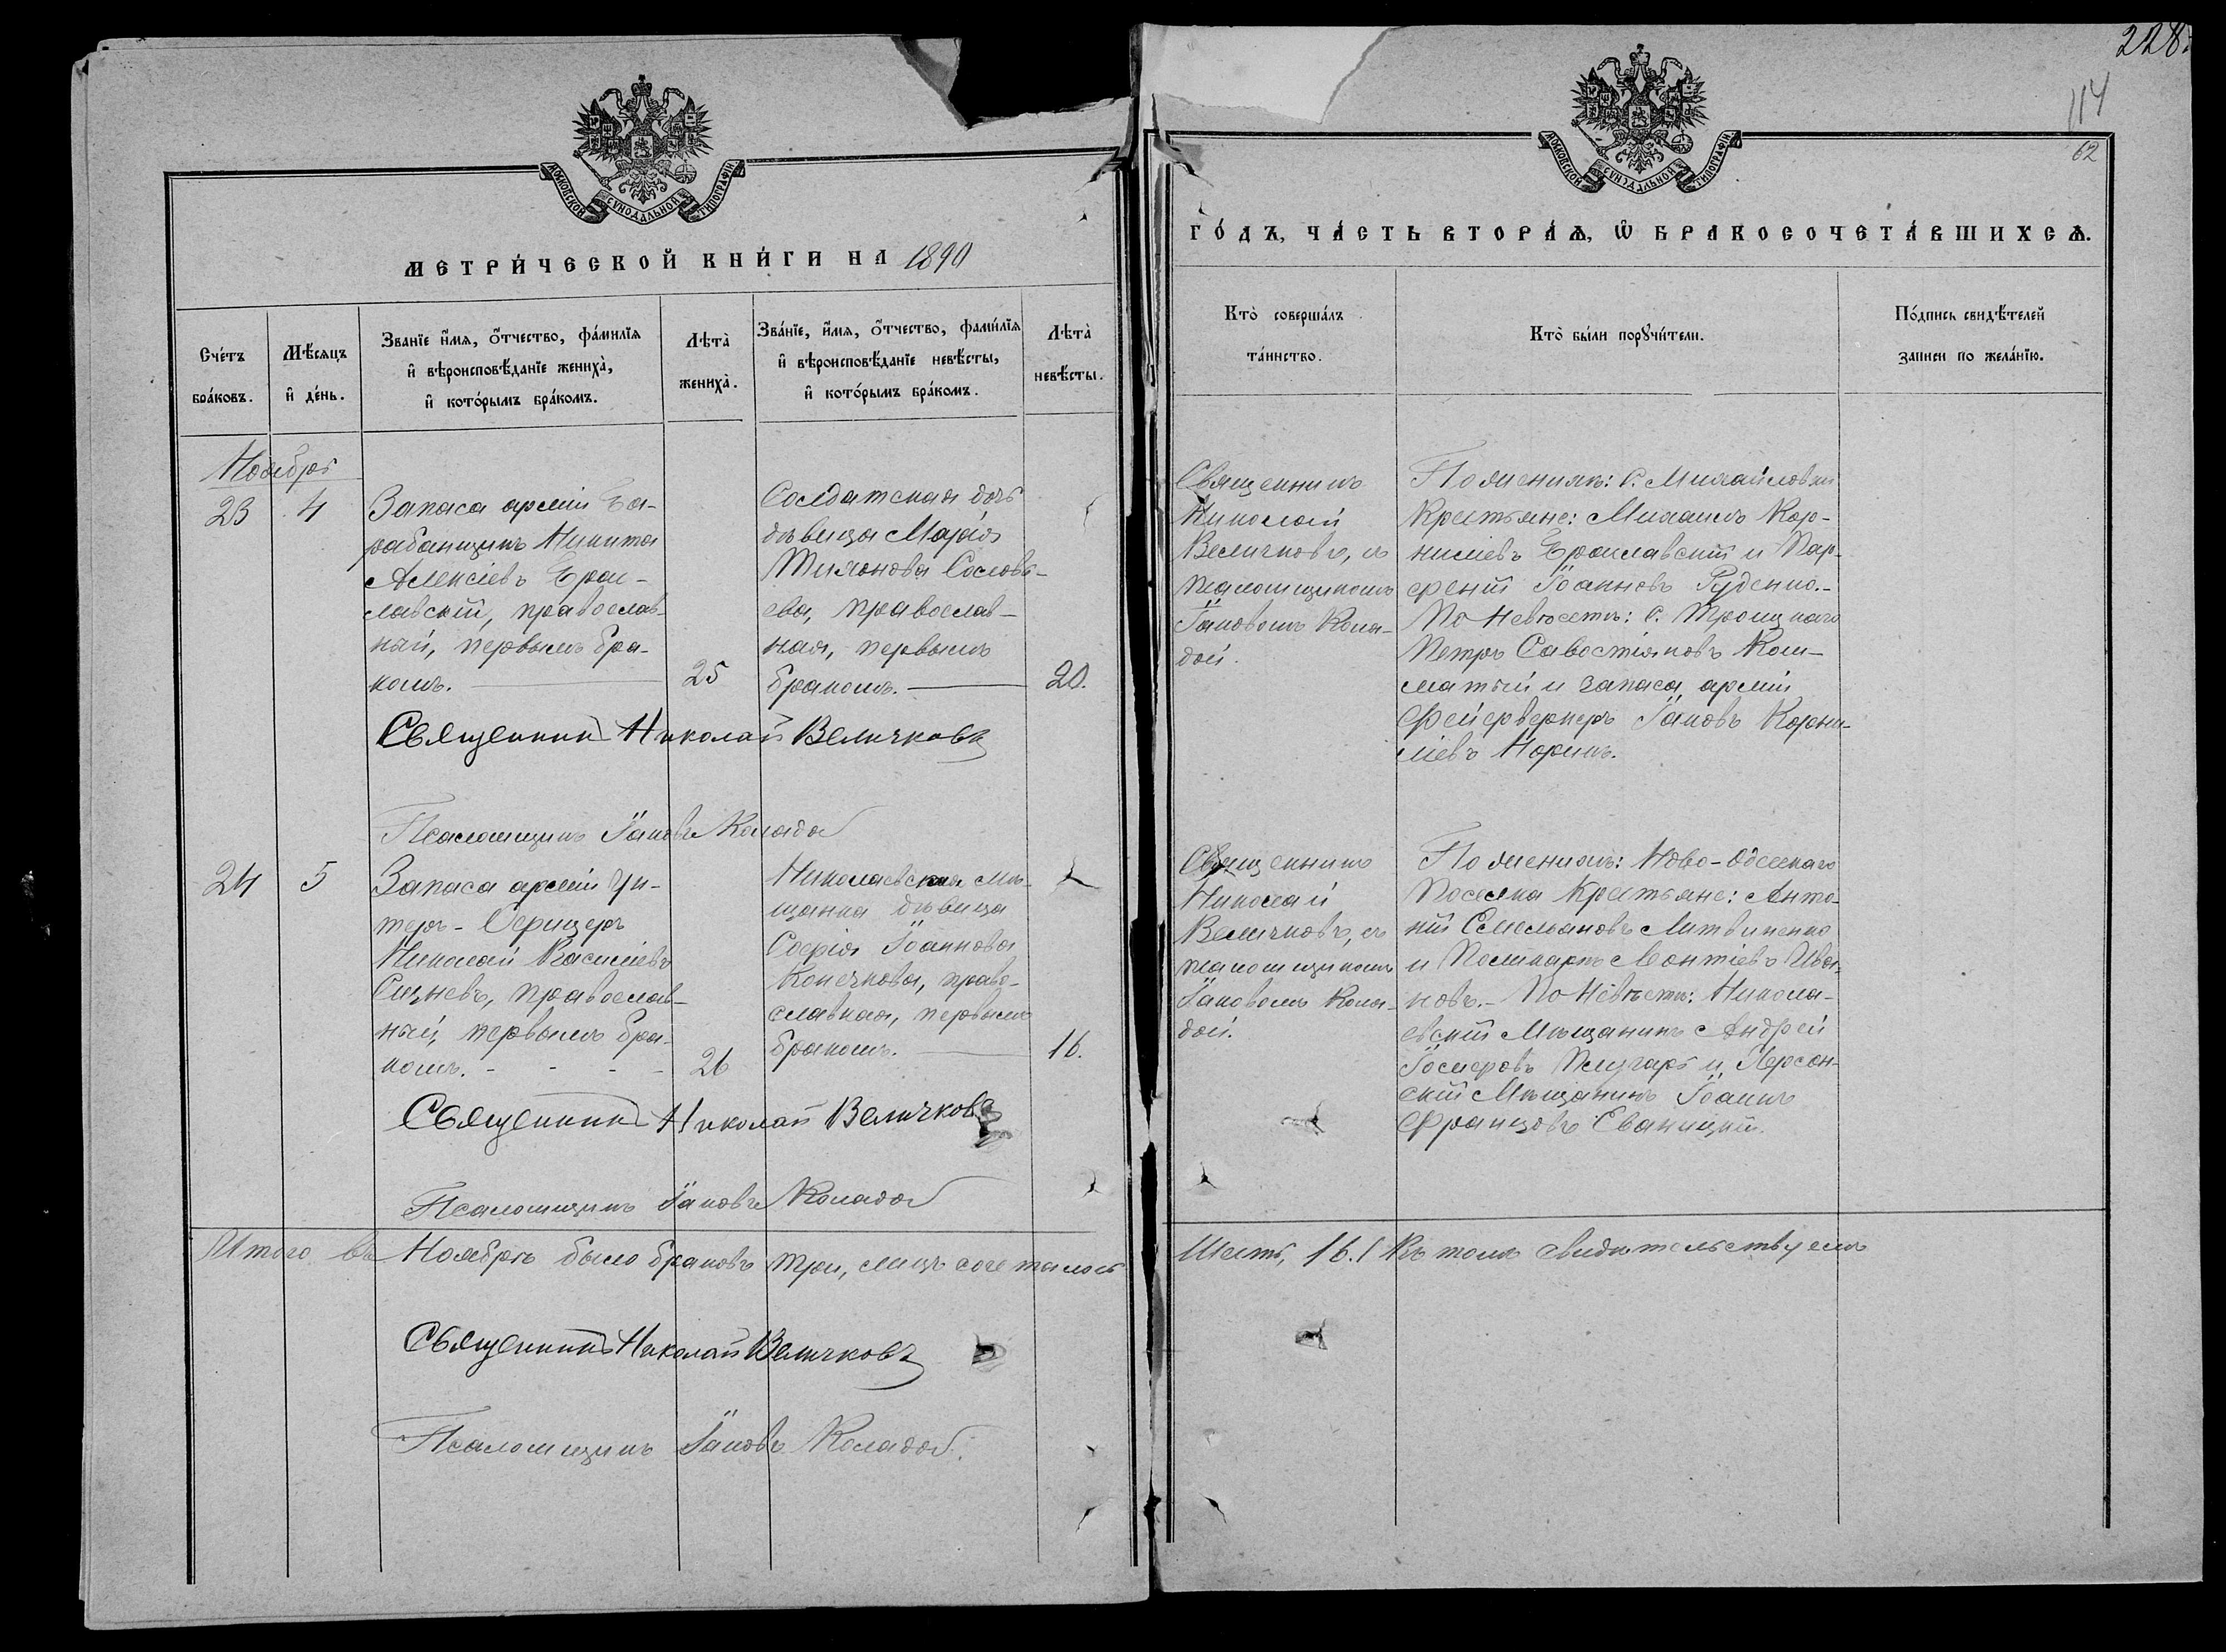 228.
114
62
МОСКОВСКОЙ СѴНОДАЛЬНОЙ ТИПОГРАФІИ
МОСКОВСКОЙ СѴНОДАЛЬНОЙ ТИПОГРАФІИ
МЕТРИ́ЧЕСКОЙ КНИ́ГИ НА 1890
ГО́ДЪ, ЧА́СТЬ ВТОРА́Ѧ, Ѿ БРАКОСОЧЕТА́ВШИХСѦ.
Сче́тъ
бра́ковъ.
Мѣ́сѧцъ
и҆ де́нь.
Зва́нїе и҆́мѧ, ѻ҆́тчество, фами́лїѧ
и҆ вѣроисповѣ́данїе жениха̀,
и҆ кото́рымъ бра́комъ.
Лѣта̀
жениха̀.
Зва́нїе, и҆́мѧ, ѻ҆́тчество, фами́лїѧ
и҆ вѣроисповѣ́данїе невѣ́сты,
и҆ кото́рымъ бра́комъ.
Лѣта̀
невѣ́сты.
Кто̀ соверша́лъ
та́инство.
Кто̀ бы́ли порꙋчи́тели.
По́дпись свидѣ́телей
записи по жела́нїю.
Ноябрь
23
4
Запаса арміи Ба-
рабанщикъ Никита
Алексіевъ Ерос-
лавскій, православ-
ный, первымъ бра-
комъ.
25
Солдатская дочь
дѣвица Марія
Тихонова Соловь-
ева, православ-
ная, первымъ
бракомъ.
20.
Священникъ
Николай
Величковъ, съ
псаломщикомъ
Іаковомъ Кола-
дой.
По жениху: С. Михайловки
Крестьяне: Михаилъ Кор-
ниліевъ Ерославскій и Пар-
феній Іоанновъ Руденко.-
По Невѣстѣ: С. Троицкаго
Петръ Савостіяновъ Кош-
матый и запаса арміи
Фейерверкеръ Іаковъ Корни-
ліевъ Норинъ.
Священникъ Николай Величковъ
Псаломщикъ Іаковъ Колада
24
5
Запаса арміи Ун-
теръ-Офицеръ
Николай Василіевъ
православ-
ный, первымъ бра-
комъ. - - - -
26
Николаевская мѣ-
щанка дѣвица
Софія Іоаннова
Конечкова, право-
славная, первымъ
бракомъ.
16.
Священникъ
Николай
Величковъ, съ
псаломщикомъ
Іаковомъ Кола-
дой.
По жениху: Ново-Одесскаго
Поселка Крестьяне: Анто-
ній Емельяновъ Литвиненко
и Поликарпъ Леонтіевъ Ива-
новъ.- По Невѣстѣ: Никола-
евскій Мѣщанинъ Андрей
Іосифовъ Плугарь и Херсон-
скій Мѣщанинъ Іоаннъ
Францовъ Еваницкій.
Священникъ Николай Величковъ
Псаломщикъ Іаковъ Колада
Итого въ Ноябрѣ было браковъ три, лицъ сочеталось
Шесть, /6./ Въ томъ свидѣтельствуемъ
Священникъ Николай Величковъ
Псаломщикъ Іаковъ Колада.